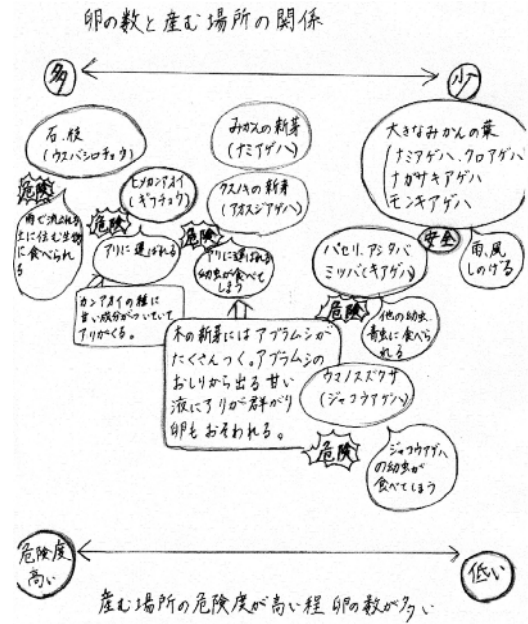 卵の数と産む場所の関係
多
少
石、枝
(ウスバシロチョウ)
危険
雨で流される
土に住む生物
に食べられ
る
ヒメカンアオイ
(ギフチョウ)
危険
アリに運ばれる
カンアオイの種に
甘い成分がついていて
アリがくる。
みかんの新芽
(ナミアゲハ)
クスノキの新芽
(アオスジアゲハ)
危険
アリに運ばれる
幼虫が食べて
しまう
木の新芽にはアブラムシが
たくさんつく。アブラムシの
おしりから出る甘い
液にアリが群がり
卵もおそわれる。
大きなみかんの葉
(ナミアゲハ、クロアゲハ
ナガサキアゲハ
モンキアゲハ
安全
雨、風
しのげる
パセリ、アシタバ
ミツバ(キアゲハ)
危険
他の幼虫、
青虫に食べら
れる
ウマノスズクサ
(ジャコウアゲハ)
危険
ジャコウアゲハ
の幼虫が
食べてしまう
危険度
高い
低い
産む場所の危険度が高い程卵の数が多い